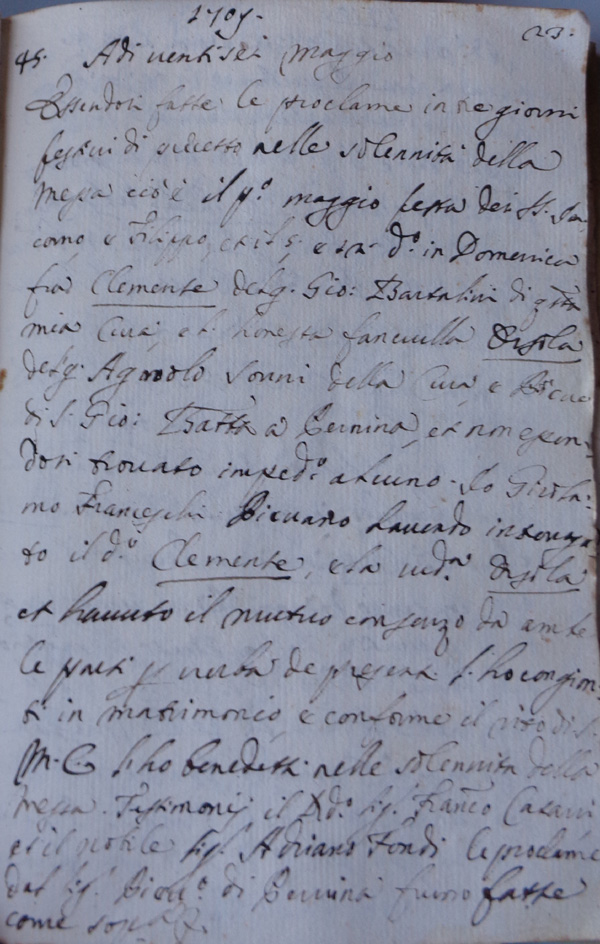 1705. 23:
45. Adi ventisei maggio
Essendosi fatte le proclame in tre giorni
festivi di precetto nelle solennità della
messa cioè il p.º maggio festa dei SS. Ja
como e Filippo, e d.º in Domenica
fra Clemente del q. Gio: Bartalini di q.sta
mia Cura, et l'honesta fanciulla Orsola
del q. Agnolo Sonni della Cura e Pieve
di S. Gio: Batta a Pernina, et non essen=
dosi trovato imped.º alcuno. Io Girola:
mo Franceschi Pievano havendo interroga
to il d.º Clemente, e la md.ª Orsola
et havuto il mutuo consenzo da ambe
le parti p verba de presenti l'ho congion=
ti in matrimonio e conforme il rito di S.
M. C. l'ho benedetti nelle solennità della
messa. Testimonij il Rd.º Sig.r Franco Casini
et il nobile Sig.r Adriano Fondi le proclame
dal Sig.r Piev.º di Pernina furno fatte
come sopra